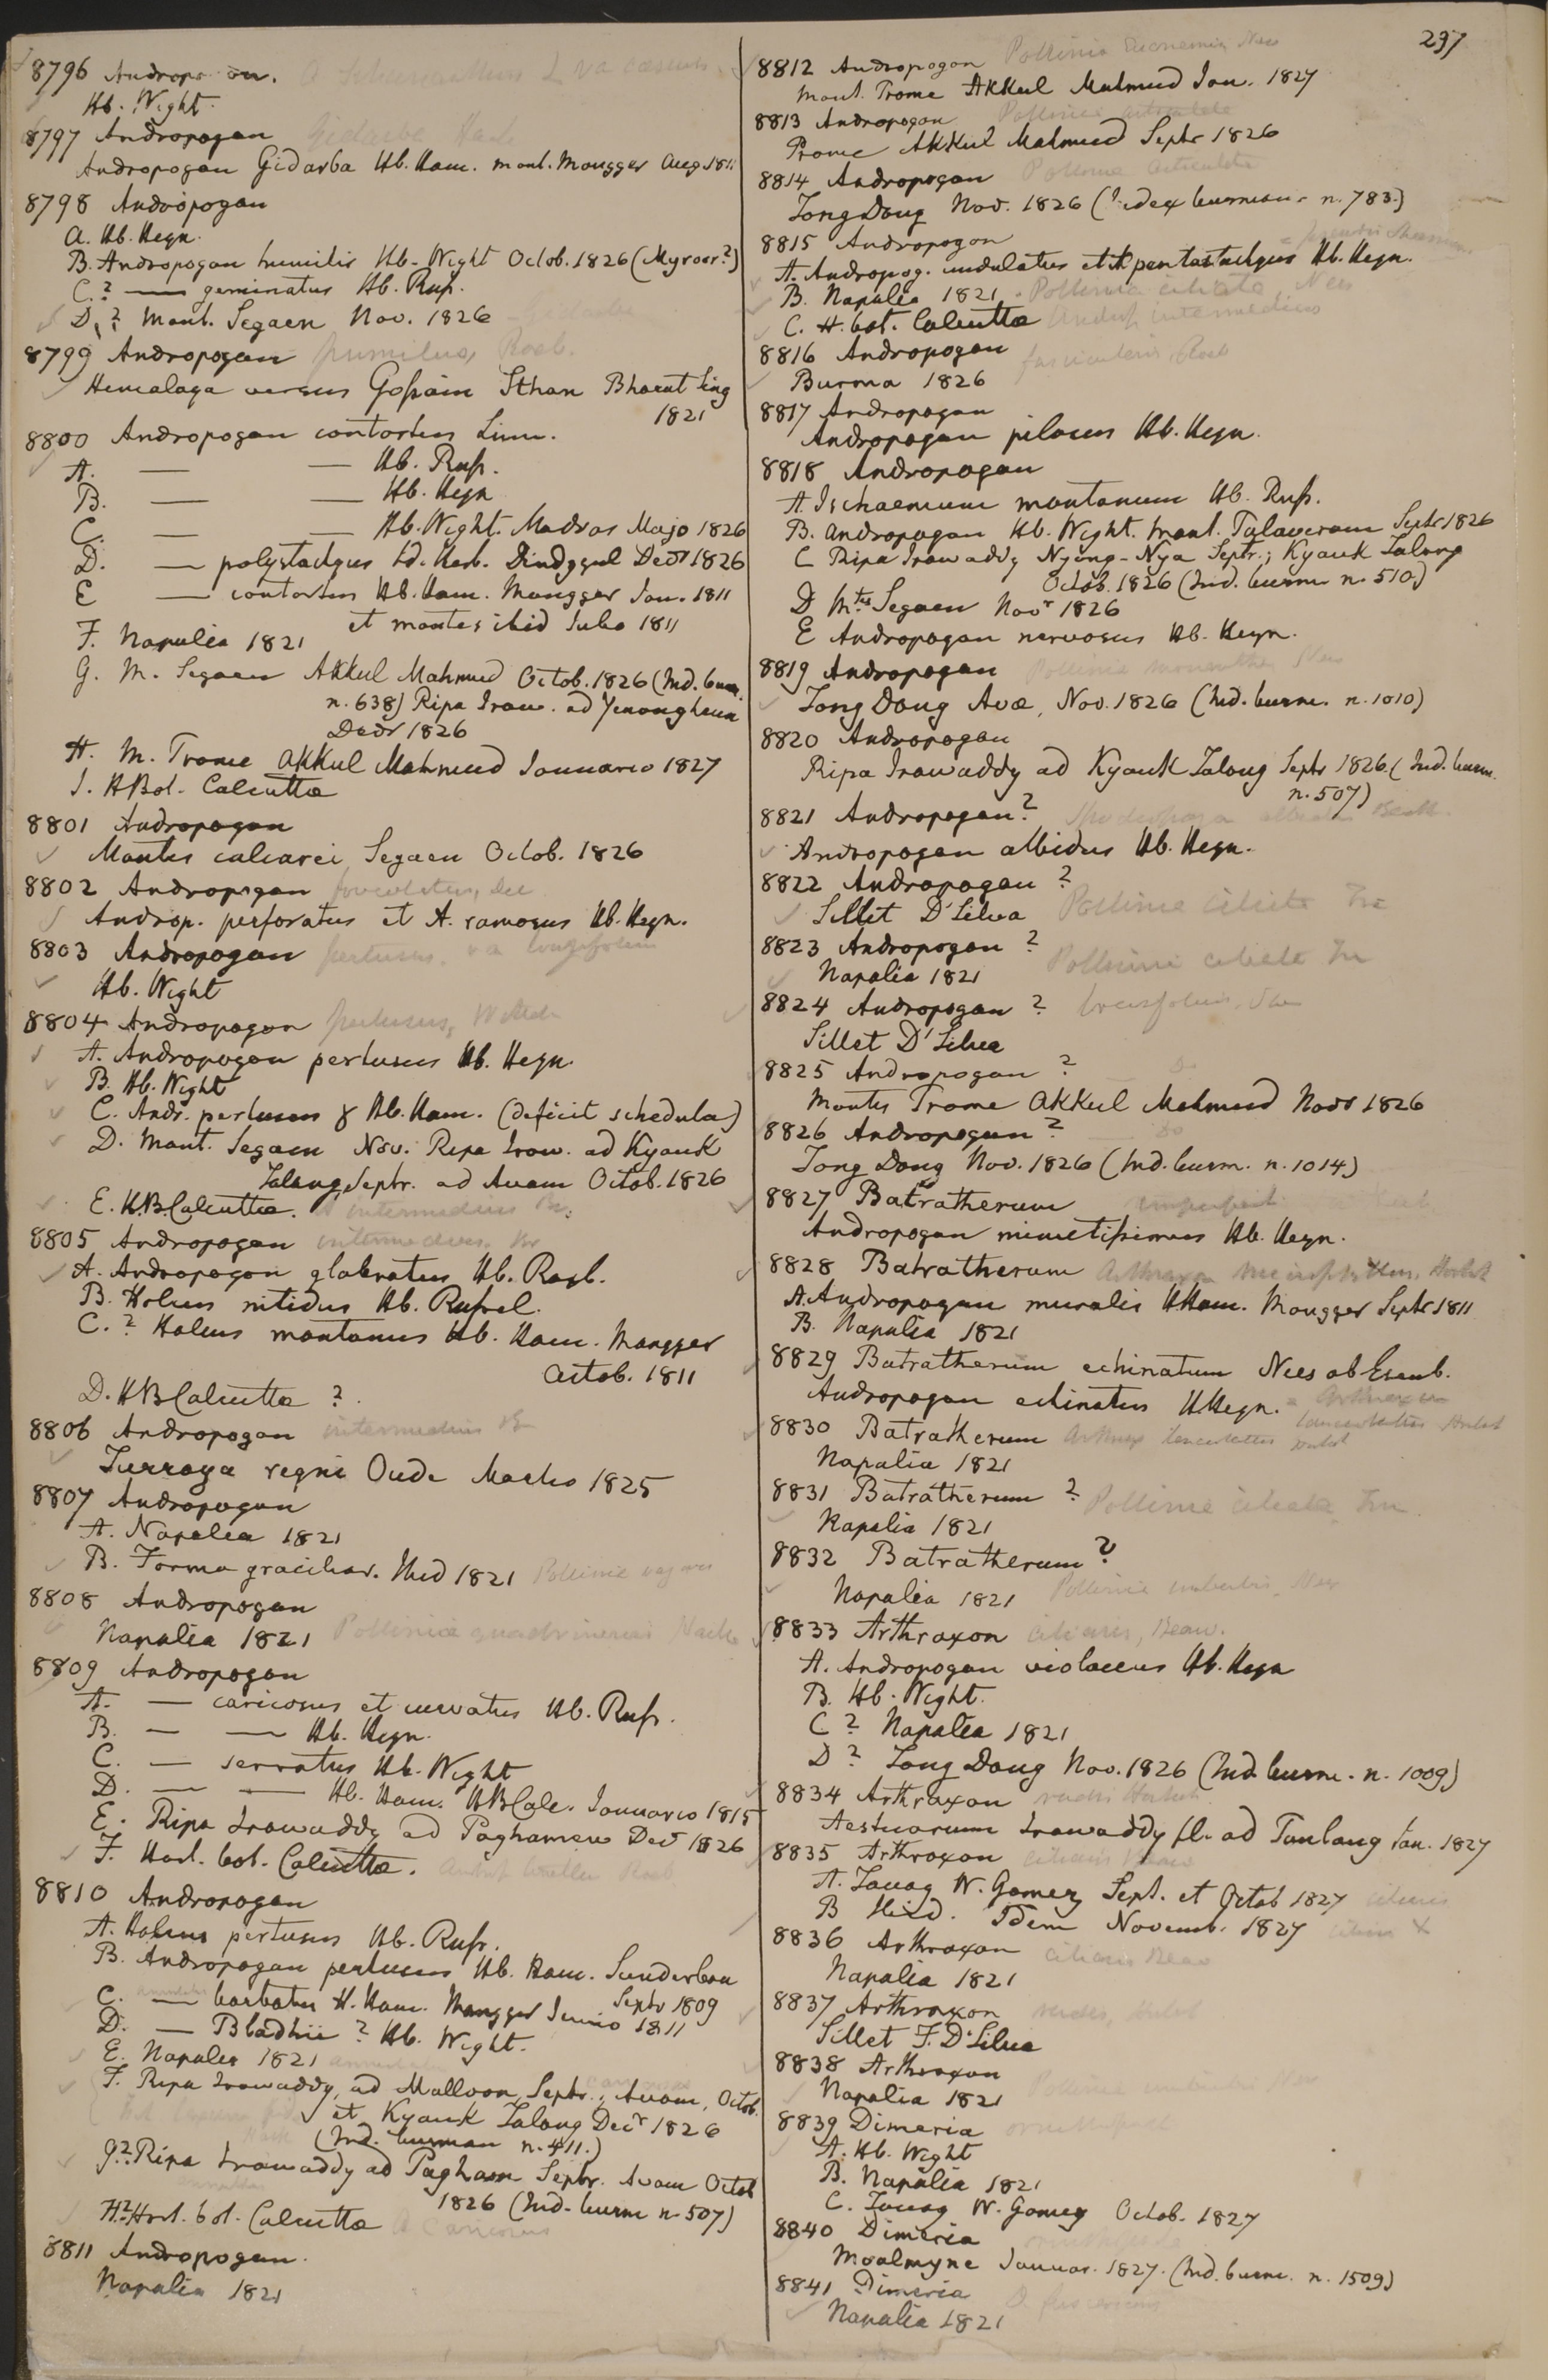 237
8796 Andropogon.
Hb. Wight.
8797 Andropogon
Andropogon Gidarba Hb. Ham. mont. Mongger Aug 1811
8798 Andropogon
a. Hb. Heyn.
B. Andropogon humilis Hb. Wight Octob. 1826 (Mysoor?)
C.? — geminatus Hb. Russ.
D.? Mont. Segaen Nov. 1826
8799 Andropogon pumilus, Roxb.
Hemalaya versus Gossain Sthan Bharut Sing
1821
8800 Andropogon contortus Linn.
A. — — Hb. Russ.
B. — — Hb. Heyn
C. — — Hb. Wight. Madras Majo 1826
D. — polystachyus Id. Herb. Dindygul Decr 1826
E — contortus Hb. Ham. Mongger Jan. 1811
et montes ibid Julio 1811
F. Napalia 1821
G. M. Segaen Akkul Mahmud Octob. 1826 (Ind. burm.
n. 638) Ripa Iraw. ad Yenangheun
Decr 1826
H. M. Prome Akkul Mahmud Januario 1827
I. HBot. Calcutta
8801 Andropogon
Montes calcarei Segaen Octob. 1826
8802 Andropogon foveolatus, Del
Androp. perforatus et A. ramosus Hb. Heyn.
8803 Andropogon pertusus, va longifolium
Hb. Wight
8804 Andropogon pertusus, Willd
A. Andropogon pertusus Hb. Heyn.
B. Hb. Wight
C. Andr. pertusus γ Hb. Ham. (deficit schedula)
D. Mont. Segaen Nov. Ripa Iraw. ad Kyauk
Talong Septr. ad Avam Octob. 1826
E. H.B. Calcutta. A intermedius Br.
8805 Andropogon intermedius, Br
A. Andropogon glabratus Hb. Roxb.
B. Holcus nitidus Hb. Russel.
C.? Holcus montanus Hb. Ham. Mongger
Octob. 1811
D. HB Calcutta ?
8806 Andropogon intermedius Br
Turraya regni Oude Martio 1825
8807 Andropogon
A. Napalia 1821
B. Forma gracilior. Ibid 1821 Pollinia vagans
8808 Andropogon
Napalia 1821 Pollinia quadrinervis Hack
8809 Andropogon
A. — caricosus et curvatus Hb. Russ.
B. — — Hb. Heyn.
C. — serratus Hb. Wight
D. — — Hb. Ham. HBCalc. Januario 1815
E. Ripa Irawaddy ad Paghamew Decr 1826
F. Hort. bot. Calcutta.
8810 Andropogon
A. Holcus pertusus Hb. Russ.
B. Andropogon pertusus Hb. Ham. Sunderbon
Septr 1809
C. — barbatus H. Ham. Mongger Junio 1811
D. — Bladhii ? Hb. Wight.
E. Napalia 1821 annulatus
F. Ripa Irawaddy, ad Malloon, Septr., Avam, Octob.
et Kyauk Talong Decr 1826
(Ind. burman n. 411.)
G? Ripa Irawaddy ad Pagham Septr. Avam Octob
1826 (Ind. burm n. 507)
H? Hort. bot. Calcutta A caricosus
8811 Andropogon.
Napalia 1821
8812 Andropogon Pollinia Nees
Mont. Prome Akkul Mahmud Jan. 1827
8813 Andropogon Pollinia articulata
Prome Akkul Mahmud Septr 1826
8814 Andropogon Pollinia articulata
Tong Dong Nov. 1826 (Index burman. n. 783.)
8815 Andropogon
A. Andropog. undulatus et A pentastachyus Hb. Heyn.
B. Napalia 1821. Pollinia ciliata, Nees
C. H. bot. Calcutta Androp intermedius
8816 Andropogon fascicularis, Roxb
Burma 1826
8817 Andropogon
Andropogon pilosus Hb. Heyn.
8818 Andropogon
A. Ischaemum montanum Hb. Russ.
B. Andropogon Hb. Wight. mont. Talaveram Septr 1826
C Ripa Irawaddy Nyong-Nya Septr.; Kyauk Talong
Octob. 1826 (Ind. burm n. 510)
D Mtes Segaen Novr 1826
E Andropogon nervosus Hb. Heyn.
8819 Andropogon Pollinia monantha Nees
Tong Dong Avae, Nov. 1826 (Ind. burm. n. 1010)
8820 Andropogon
Ripa Irawaddy ad Kyauk Talong Septr 1826 (Ind. burm.
n. 507)
8821 Andropogon? Spodiopogon albidus Benth.
Andropogon albidus Hb. Heyn.
8822 Andropogon ?
Sillet D'Silva Pollinia ciliata Trin
8823 Andropogon ?
Napalia 1821 Pollinia ciliata Trin
8824 Andropogon ?
Sillet D'Silva
8825 Andropogon ? Do
Montes Prome Akkul Mahmud Novr 1826
8826 Andropogon ? Do
Tong Dong Nov. 1826 (Ind. burm. n. 1014)
8827 Batratherum
Andropogon minutissimus Hb. Heyn.
8828 Batratherum Arthraxon microphyllus, Hochst
A. Andropogon muralis HHam. Mongger Septr 1811
B. Napalia 1821
8829 Batratherum echinatum Nees ab Esenb.
Andropogon echinatus HHeyn. = Arthraxon
lanceolatus Hochst
8830 Batratherum Arthrax lanceolatus Hochst
Napalia 1821
8831 Batratherum ? Pollinia ciliata, Trin
Napalia 1821
8832 Batratherum ?
Napalia 1821 Pollinia imberbis, Nees
8833 Arthraxon ciliaris, Beauv.
A. Andropogon violaceus Hb. Heyn
B. Hb. Wight.
C ? Napalia 1821
D ? Tong Dong Nov. 1826 (Ind. burm. n. 1009)
8834 Arthraxon rudis Hochst.
Aestuarium Irawaddy fl. ad Tanlang Jan. 1827
8835 Arthraxon ciliaris Beauv
A. Tavoy W. Gomez Sept. et Octob 1827 ciliaris
B Ibid. Idem Novemb. 1827 ciliaris
8836 Arthraxon ciliaris Beauv
Napalia 1821
8837 Arthraxon rudis, Hochst
Sillet F. D'Silva
8838 Arthraxon
Napalia 1821
8839 Dimeria ornithopoda
A. Hb. Wight
B. Napalia 1821
C. Tavoy W. Gomez Octob. 1827
8840 Dimeria ornithopoda
Moalmyne Januar. 1827. (Ind. burm. n. 1509)
8841 Dimeria D. fuscescens
Napalia 1821